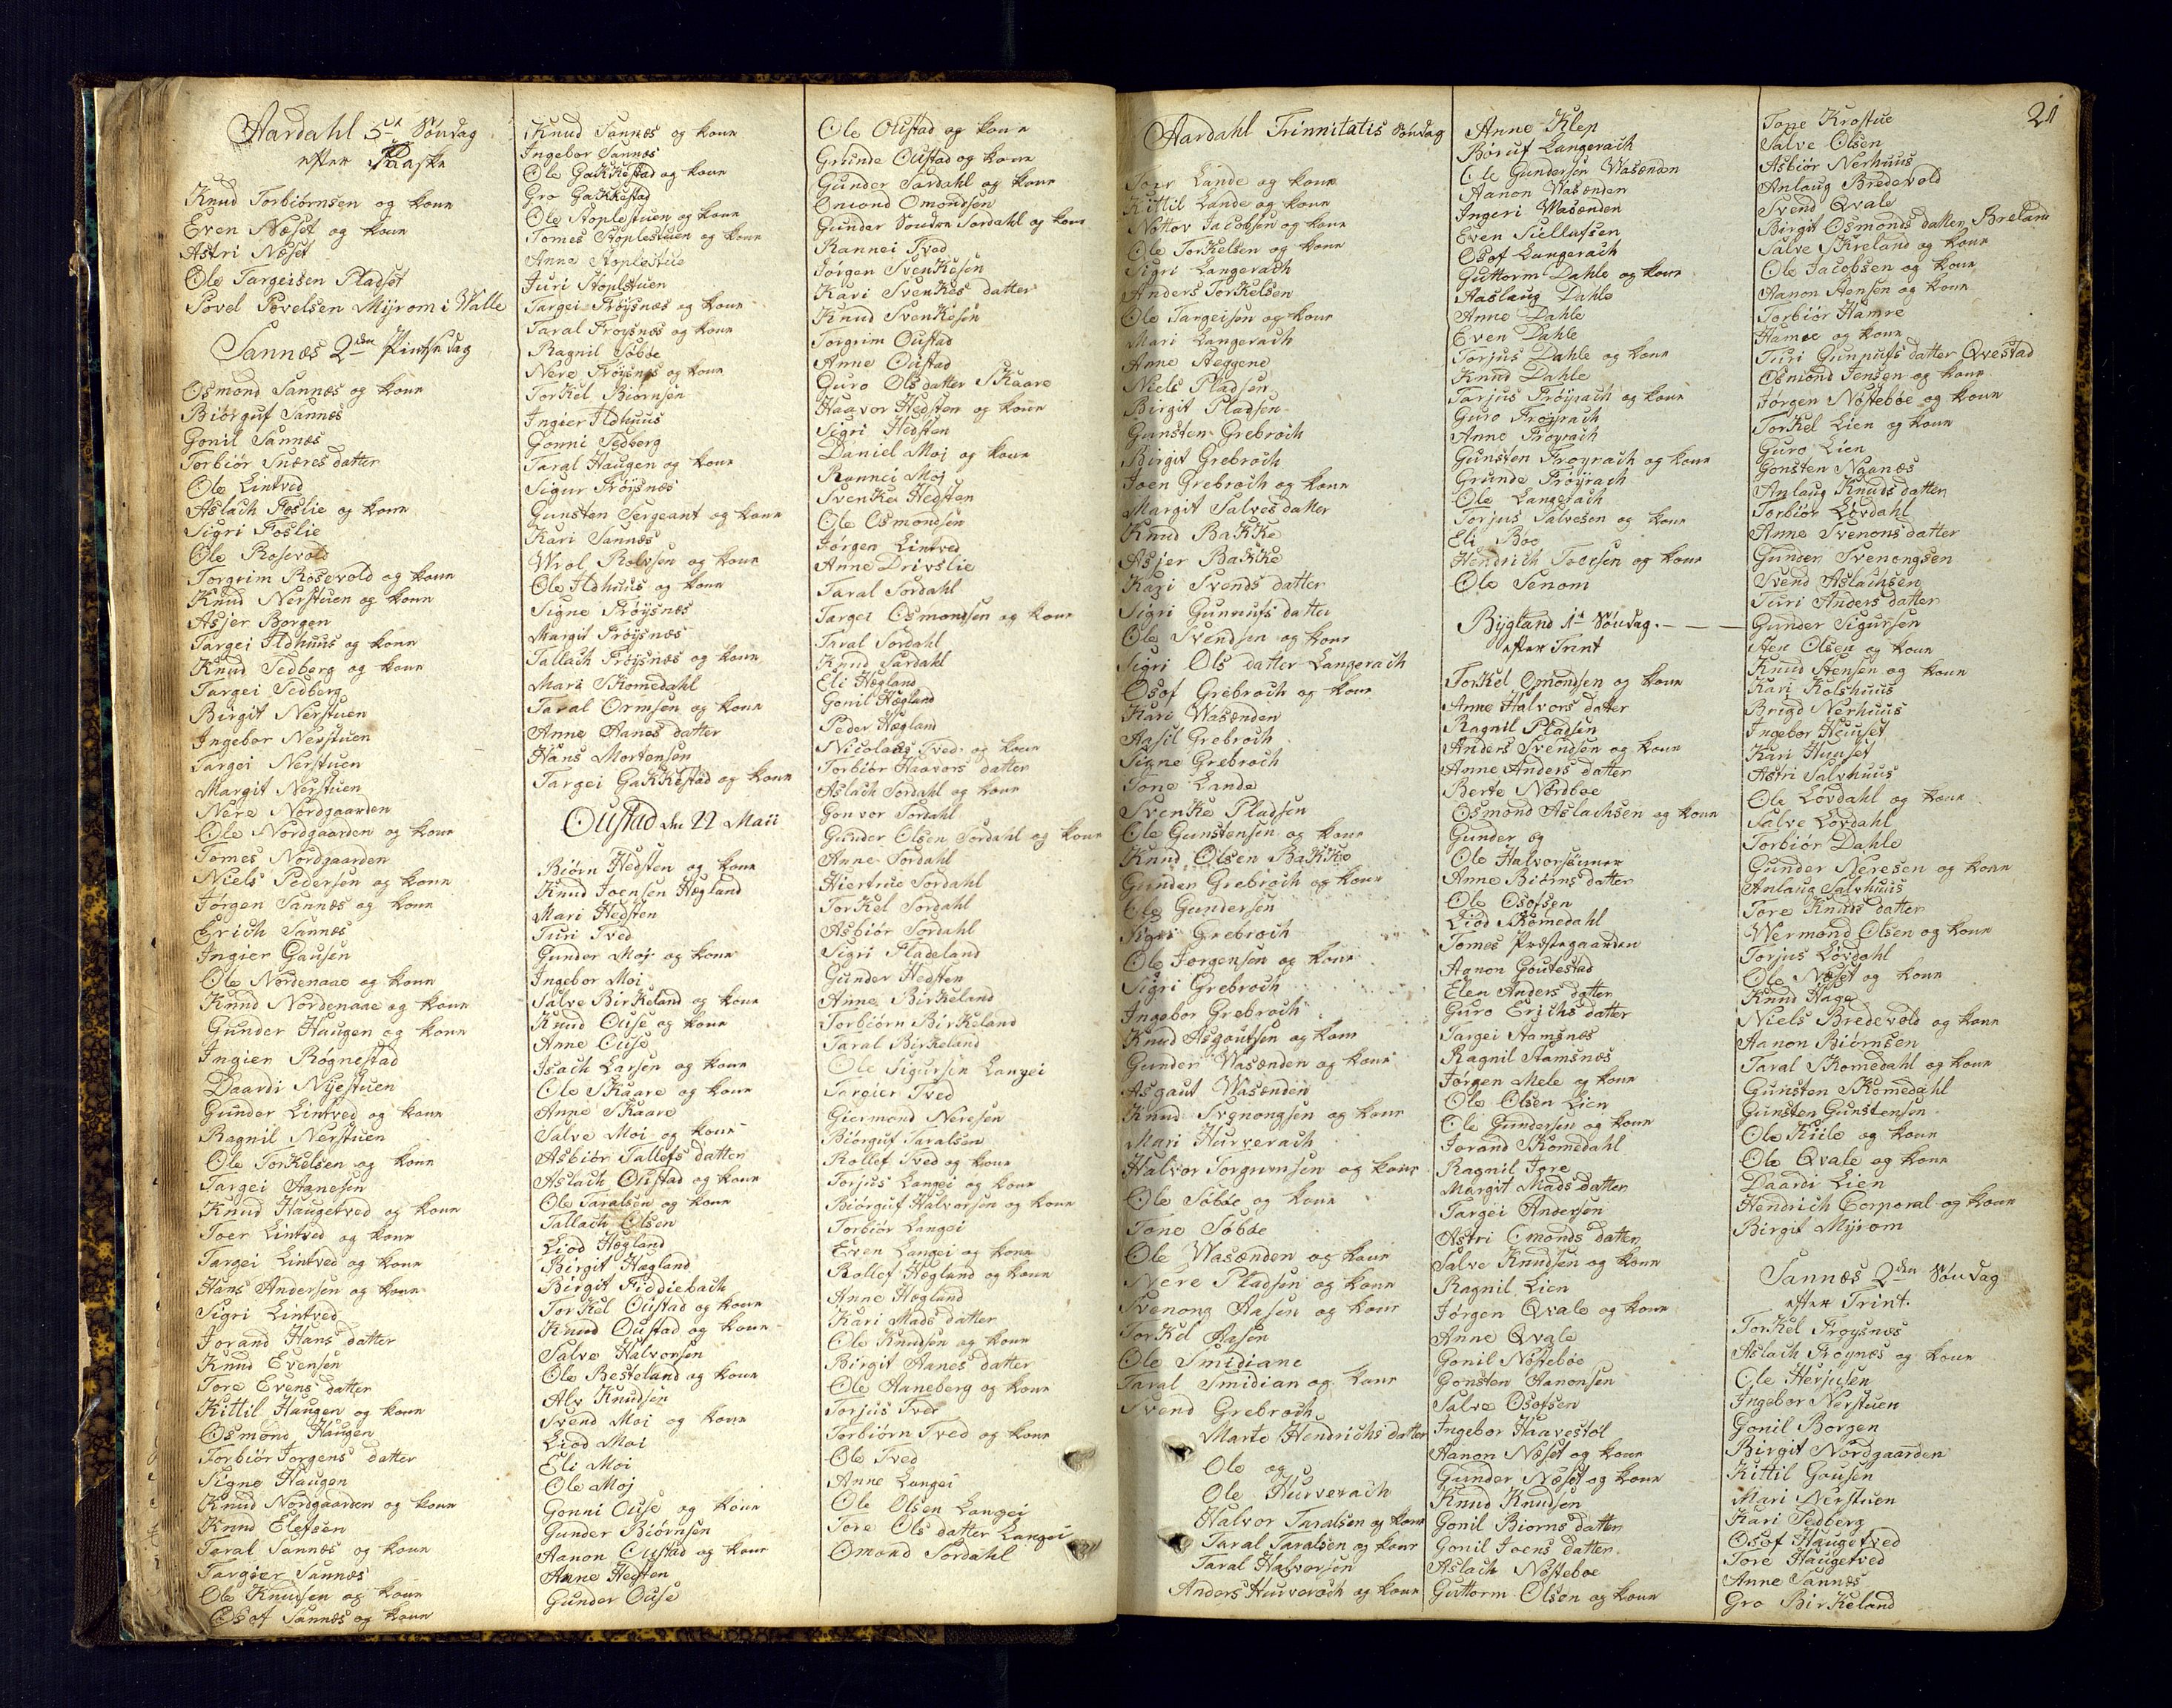 Aardahl 5te Søndag
efter Paaske
Knud Torbiørnsen og kone
Even Næset og kone
Astri Næset
Ole Targeisen Pladset
Povel Povelsen Myrom i Walle
Sannæs 2den Pintsedag
Osmond Sannæs og kone
Biørguf Sannæs
Gonil Sannæs
Torbiør Snæres datter
Ole Lintved
Aslach Foslie og kone
Sigri Foslie
Ole Rosevold
Torgrim Rosevold og kone
Knud Nerstuen og kone
Asjer Borgen
Targei Ildhuus og kone
Knud Tedberg og kone
Targei Tedberg
Birgit Nerstuen
Ingebor Nerstuen
Targei Nerstuen
Margit Nerstuen
Nere Nordgaarden
Ole Nordgaarden og kone
Tomes Nordgaarden
Niels Pedersen og kone
Jørgen Sannæs og kone
Erich Sannæs
Ingier Gausen
Ole Nordenaae og kone
Knud Nordenaae og kone
Gunder Haugen og kone
Ingier Røgnestad
Daardi Nyestuen
Gunder Lintved og kone
Ragnil Nerstuen
Ole Torkelsen og kone
Targei Aanesen
Knud Haugetved og kone
Toer Lintved og kone
Targei Lintved og kone
Hans Andersen og kone
Sigri Lintved
Jorand Hans datter
Knud Evensen
Tore Evens datter
Kittil Haugen og kone
Osmond Haugen
Torbiør Jorgens datter
Signe Haugen
Knud Nordgaarden og kone
Knud Elefsen
Taral Sannæs og kone
Targier Sannæs
Ole Knudsen og kone
Osof Sannæs og kone
Knud Sannæs og kone
Ingebor Sannæs
Ole Gakkestad og kone
Gro Gakkestad
Ole Stoplestuen og kone
Tomes Stoplestuen og kone
Anne Stoplestue
Juri Stoplstuen
Targei Frøysnæs og kone
Taral Froysnæs og kone
Ragnil Søbøe
Nere Frøysnes og kone
Torkel Biørnsen
Ingier Ildhuus
Gonni Tedberg
Taral Haugen og kone
Sigur Frøysnæs
Gunsten Sergeant og kone
Kari Sannæs
Wrol Rolvsen og kone
Ole Ildhuus og kone
Signe Frøysnæs
Margit Frøysnæs
Tallach Frøysnæs og kone
Mari Skomedahl
Taral Ormsen og kone
Anne Aanes datter
Hans Mortensen
Targei Gakkestad og kone
Oustad den 22 Maii
Biørn Hedsten og kone
Knud Joensen Hægland
Mari Hedsten
Turi Tved
Gunder Moj og kone
Ingebor Moi
Salve Birkeland og kone
Knud Ouse og kone
Anne Ouse
Isach Larsen og kone
Ole Skaare og kone
Anne Skaare
Salve Moi og kone
Asbiør Tallefs datter
Aslach Oustad og kone
Ole Taralsen og kone
Tallach Olsen
Liod Hægland
Birgit Hægland
Birgit Fiddiebach
Torkel Oustad og kone
Knud Oustad og kone
Salve Halvorsen
Ole Besteland og kone
Alv Knudsen
Svend Moi og kone
Liod Moi
Eli Moi
Ole Moj
Gonni Ouse og kone
Gunder Biørnsen
Aanon Oustad og kone
Anne Hedsten
Gunder Ouse
Ole Oustad og kone
Grunde Oustad og kone
Gunder Sordahl og kone
Omond Omondsen
Gunder Sondre Sordahl og kone
Rannei Tved
Jørgen Svenkesen
Kari Svenkes datter
Knud Svenkesen
Torgrim Oustad
Anne Oustad
Guro Ols datter Skaare
Haavor Hedsten og kone
Sigri Hedsten
Daniel Moj og kone
Rannei Moj
Svenke Hedsten
Ole Osmondsen
Jørgen Lintved
Anne Drivslie
Taral Sordahl
Targei Osmondsen og kone
Taral Sordahl
Knud Sordahl
Eli Hægland
Gonil Hægland
Peder Hæglan
Nicolaus Tved og kone
Torbiør Haavors datter
Aslach Sordahl og kone
Gonvor Sordahl
Gunder Olsen Sordahl og kone
Anne Sordahl
Hiertrue Sordahl
Torkel Sordahl
Asbiør Sordahl
Sigri Fladeland
Gunder Hedsten
Anne Birkeland
Torbiørn Birkeland
Taral Birkeland
Ole Sigursen Langei
Targier Tved
Giermond Neresen
Biørguf Taralsen
Rollef Tved og kone
Torjus Langei og kone
Biørguf Halvorsen og kone
Torbiør Langei
Even Langei og kone
Rollef Hægland og kone
Anne Hægland
Kari Mads datter
Ole Knudsen og kone
Birgit Aanes datter
Ole Aaneberg og kone
Torjus Tved
Torbiørn Tved og kone
Ole Tved
Anne Langei
Ole Olsen Langei
Tore Ols datter Langei
Omond Sordahl
21
Aardahl Trinnitatis Søndag
Toer Lande og kone
Kittil Lande og kone
Nottov Jacobsen og kone
Ole Torkelsen og kone
Sigri Langerach
Anders Torkelsen
Ole Targeisen og kone
Mari Langerach
Anne Steggene
Niels Pladsen
Birgit Pladsen
Gunsten Grebroch
Birgit Grebroch
Joen Grebroch og kone
Margit Salves datter
Knud Bakke
Asjer Bakke
Kari Svends datter
Sigri Gunnufs datter
Ole Svendsen og kone
Sigri Ols datter Langerach
Osof Grebroch og kone
Kari Wasænden
Aasil Grebroch
Signe Grebroch
Tone Lande
Svenke Pladsen
Ole Gunstensen og kone
Knud Olsen Bakke
Gunder Grebroch og kone
Ole Gundersen
Sigri Grebroch
Ole Jørgensen og kone
Sigri Grebroch
Ingebor Grebroch
Knud Asgoutsen og kone
Gunder Wasænden og kone
Asgaut Wasænden
Knud Svenongsen og kone
Mari Hurverach
Halvor Torgrimsen og kone
Ole Søbøe og kone
Tone Søbøe
Ole Wasænden og kone
Nere Pladsen og kone
Svenong Aasen og kone
Torkel Aasen
Ole Smidiane
Taral Smidian og kone
Svend Grebroch
Marte Hendrichs datter
Ole og
Ole Hurverach
Halvor Taralsen og kone
Taral Taralsen og kone
Taral Halvorsen
Anders Hurverach og kone
Anne Klep
Børuf Langerach
Ole Gundersen Wasænden
Aanon Wasænden
Ingeri Wasænden
Even Siellufsen
Osof Langerach
Guttorm Dahle og kone
Aaslaug Dahle
Anne Dahle
Even Dahle
Torjus Dahle og kone
Knud Dahle
Tarjus Frøyrach og kone
Guro Frøyrach
Anne Froyrach
Gunsten Froyrach og kone
Grunde Frøyrach
Ole Langerach
Torjus Salvesen og kone
Eli Boe
Hendrich Toersen og kone
Ole Senom
Bygland 1te Søndag
efter Trint
Torkel Omondsen og kone
Anne Halvors datter
Ragnil Pladsen
Anders Svendsen og kone
Anne Anders datter
Berte Nordbøe
Osmond Aslachsen og kone
Gunder og
Ole Halvorsønner
Anne Biørns datter
Ole Osofsen
Liod Skomedahl
Tomes Præstegaarden
Aanon Goutestad
Elen Anders datter
Guro Erichs datter
Targei Stamsnæs
Ragnil Stamsnæs
Jørgen Mele og kone
Ole Olsen Lien
Ole Gundersen og kone
Jorand Skomedahl
Ragnil Jore
Margit Mads datter
Targei Andersen
Astri Omonds datter
Salve Knudsen og kone
Ragnil Lien
Jørgen Qvale og kone
Anne Qvale
Gonil Nøstebøe
Gonsten Aanonsen
Salve Osofsen
Ingebor Haavestøl
Aanon Næset og kone
Gunder Næset og kone
Knud Knudsen
Gonil Biorns datter
Gonil Joens datter
Aslach Nøsteboe
Guttorm Olsen og kone
Tone Krostue
Salve Olsen
Asbiør Nerhuus
Anlaug Bredevold
Svend Qvale
Birgit Osmonds datter Breland
Salve Skreland og kone
Ole Jacobsen og kone
Aanon Stensen og kone
Torbiør Hamre
Hamre og kone
Turi Gunnufs datter Qvestad
Osmond Jensen og kone
Jørgen Nøstebøe og kone
Torkel Lien og kone
Guro Lien
Gonsten Naanæs
Anlaug Knuds datter
Torbiør Lovdahl
Anne Svenons datter
Gunder Svenongsen
Svend Aslachsen
Turi Anders datter
Gunder Sigursen
Sten Olsen og kone
Knud Stensen og kone
Kari Kolshuus
Brigd Nerhuus
Ingebor Heuset
Kari Huuset
Astri Salvhuus
Ole Lovdahl og kone
Salve Lovdahl
Torbiør Dahle
Gunder Neresen og kone
Anlaug Salvhuus
Tore Knuds datter
Wermond Olsen og kone
Torjus Lovdahl
Ole Næset og kone
Knud Hage
Niels Bredevold og kone
Aanon Biørnsen
Taral Skomedahl og kone
Gunsten Skomedahl
Gunsten Gunstensen
Ole Kiile og kone
Ole Qvale og kone
Daardi Lien
Hendrich Corporal og kone
Birgit Myrom
Sannæs 2den Søndag
efter Trint.
Torkel Froysnæs
Aslach Frøynæs og kone
Ole Herjusen
Ingebor Nerstuen
Gonil Borgen
Birgit Nordgaarden
Kittil Gousen
Mari Nerstuen
Kari Tedberg
Osof Haugetved
Tore Haugetved
Anne Sannæs
Gro Birkeland